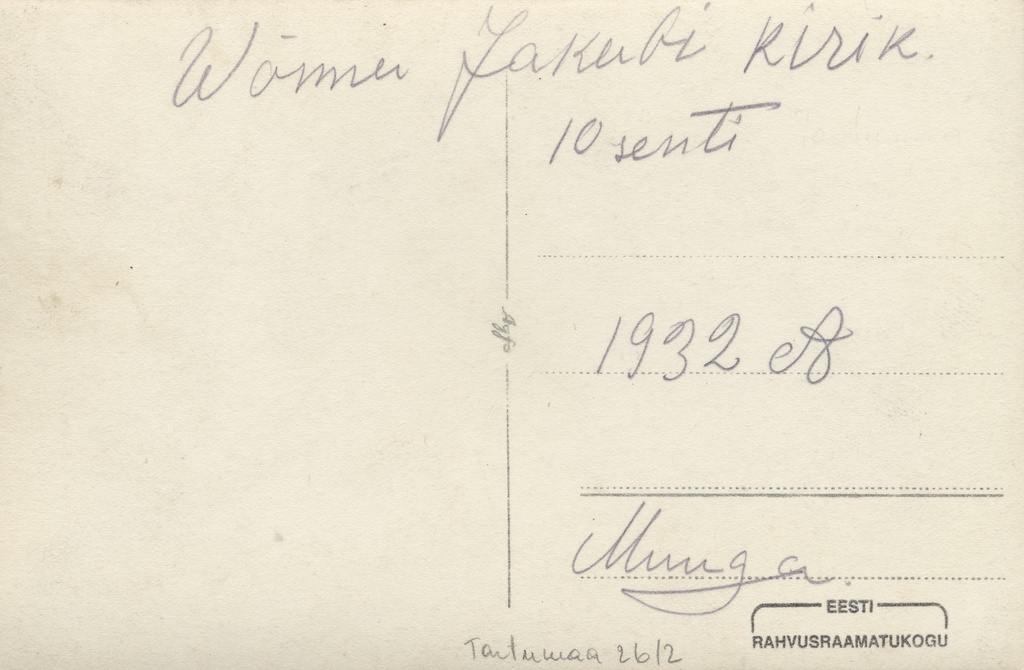 Wõnnu Jakubi kirik.
10 senti
1932 A
Munga.
EESTI
RAHVUSRAAMATUKOGU
Tartumaa 26/2